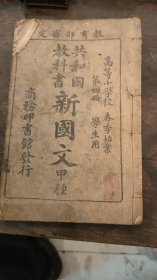 教育部審定
高等小學校 春季始業
第四冊 學生用
共和國
教科書
新國文
甲種
商務印書館發行